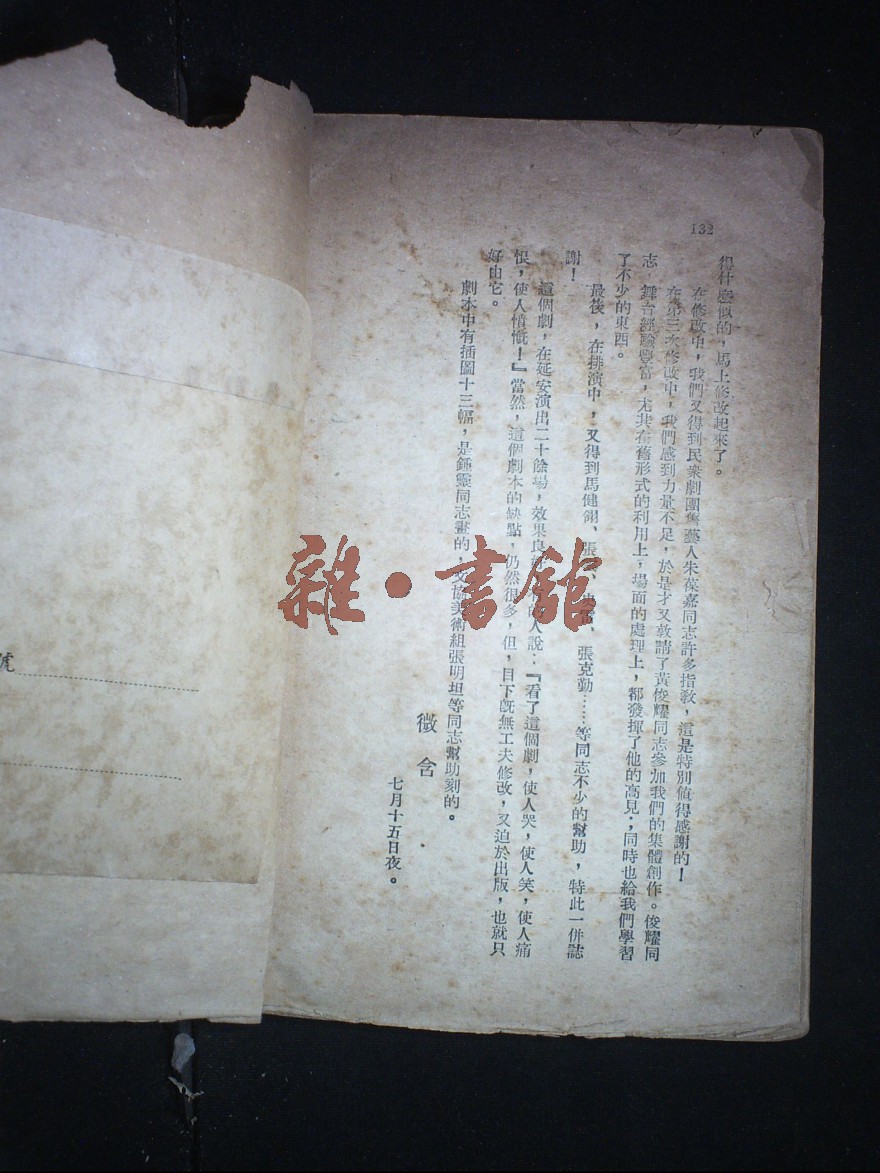 132
得什麼似的，馬上修改起來了。
在修改中，我們又得到民衆劇團舊藝人朱葆嘉同志許多指敎，這是特別值得感謝的！
在第三次修改中，我們感到力量不足，於是才又敦請了黃俊耀同志參加我們的集體創作。俊耀同
志，舞台經驗豐富，尤其在舊形式的利用上，場面的處理上，都發揮了他的高見；同時也給我們學習
了不少的東西。
最後，在排演中，又得到馬健翎、張、張克勤……等同志不少的幫助，特此一併誌
謝！
這個劇，在延安演出二十餘場，效果良人說：『看了這個劇，使人哭，使人笑，使人痛
恨，使人憤慨！』當然，這個劇本的缺點，仍然很多，但，目下旣無工夫修改，又迫於出版，也就只
好由它。
劇本中有插圖十三幅，是鍾靈同志畫的，文協美術組張明坦等同志幫助刻的。
微含
七月十五日夜。
雜·書館
號